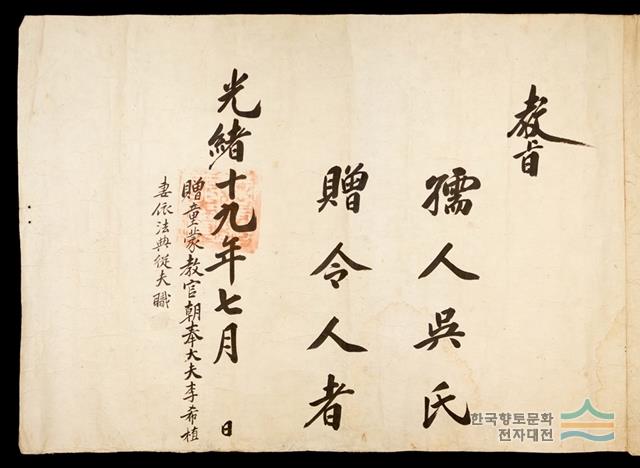 教旨
孺人吳氏
贈令人者
光緖十九年七月 日
贈童蒙教官朝奉大夫李希植
妻依法典從夫職
한국향토문화
전자대전